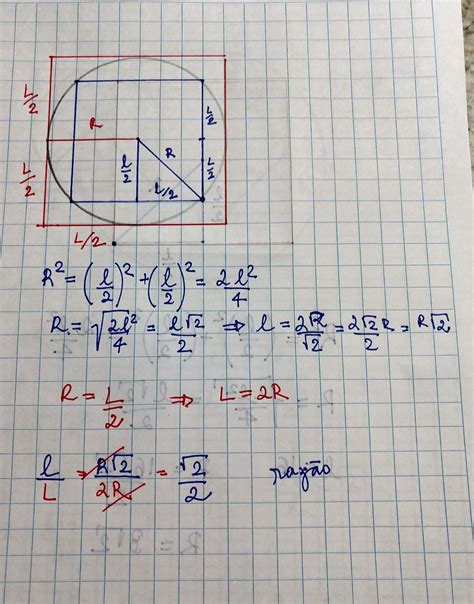 L/2
R
L/2
R
l/2
L/2
L/2
L/2
L/2
R² = (l/2)² + (l/2)² = 2l²/4
R = √2l²/4 = l√2/2 ⇒ l = 2R/√2 = 2√2 R/2 = R√2
R = L/2 ⇒ L = 2R
l/L = R√2/2R = √2/2 razão